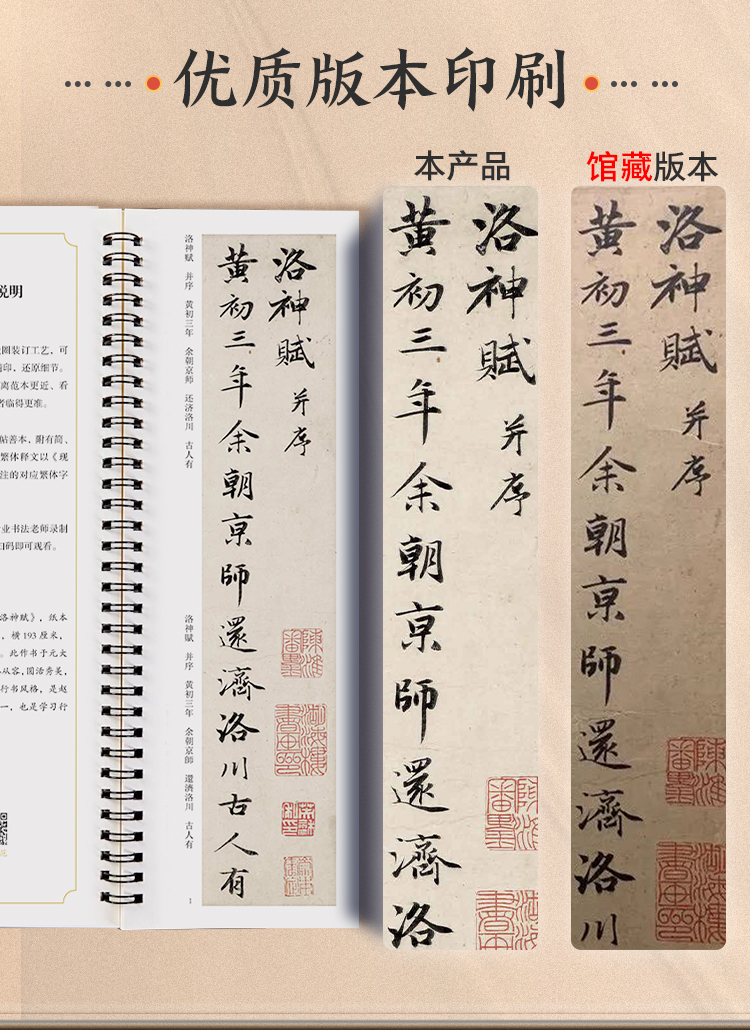 优质版本印刷
本产品
馆藏版本
说明
圈装订工艺，可
印，还原细节。
离范本更近、看
者临得更准。
帖善本，附有简、
繁体释文以《现
注的对应繁体字
业书法老师录制
扫码即可观看。
洛神赋》，纸本
，横193厘米，
。此作书于元大
从容，圆活秀美，
行书风格，是赵
一，也是学习行
洛神赋 并序 黄初三年 余朝京师 还济洛川 古人有
洛神賦 并序 黃初三年 余朝京師 還濟洛川 古人有
洛神賦 并序
黃初三年余朝京師還濟洛川古人有
洛神賦 并序
黃初三年余朝京師還濟洛
洛神賦 并序
黃初三年余朝京師還濟洛川